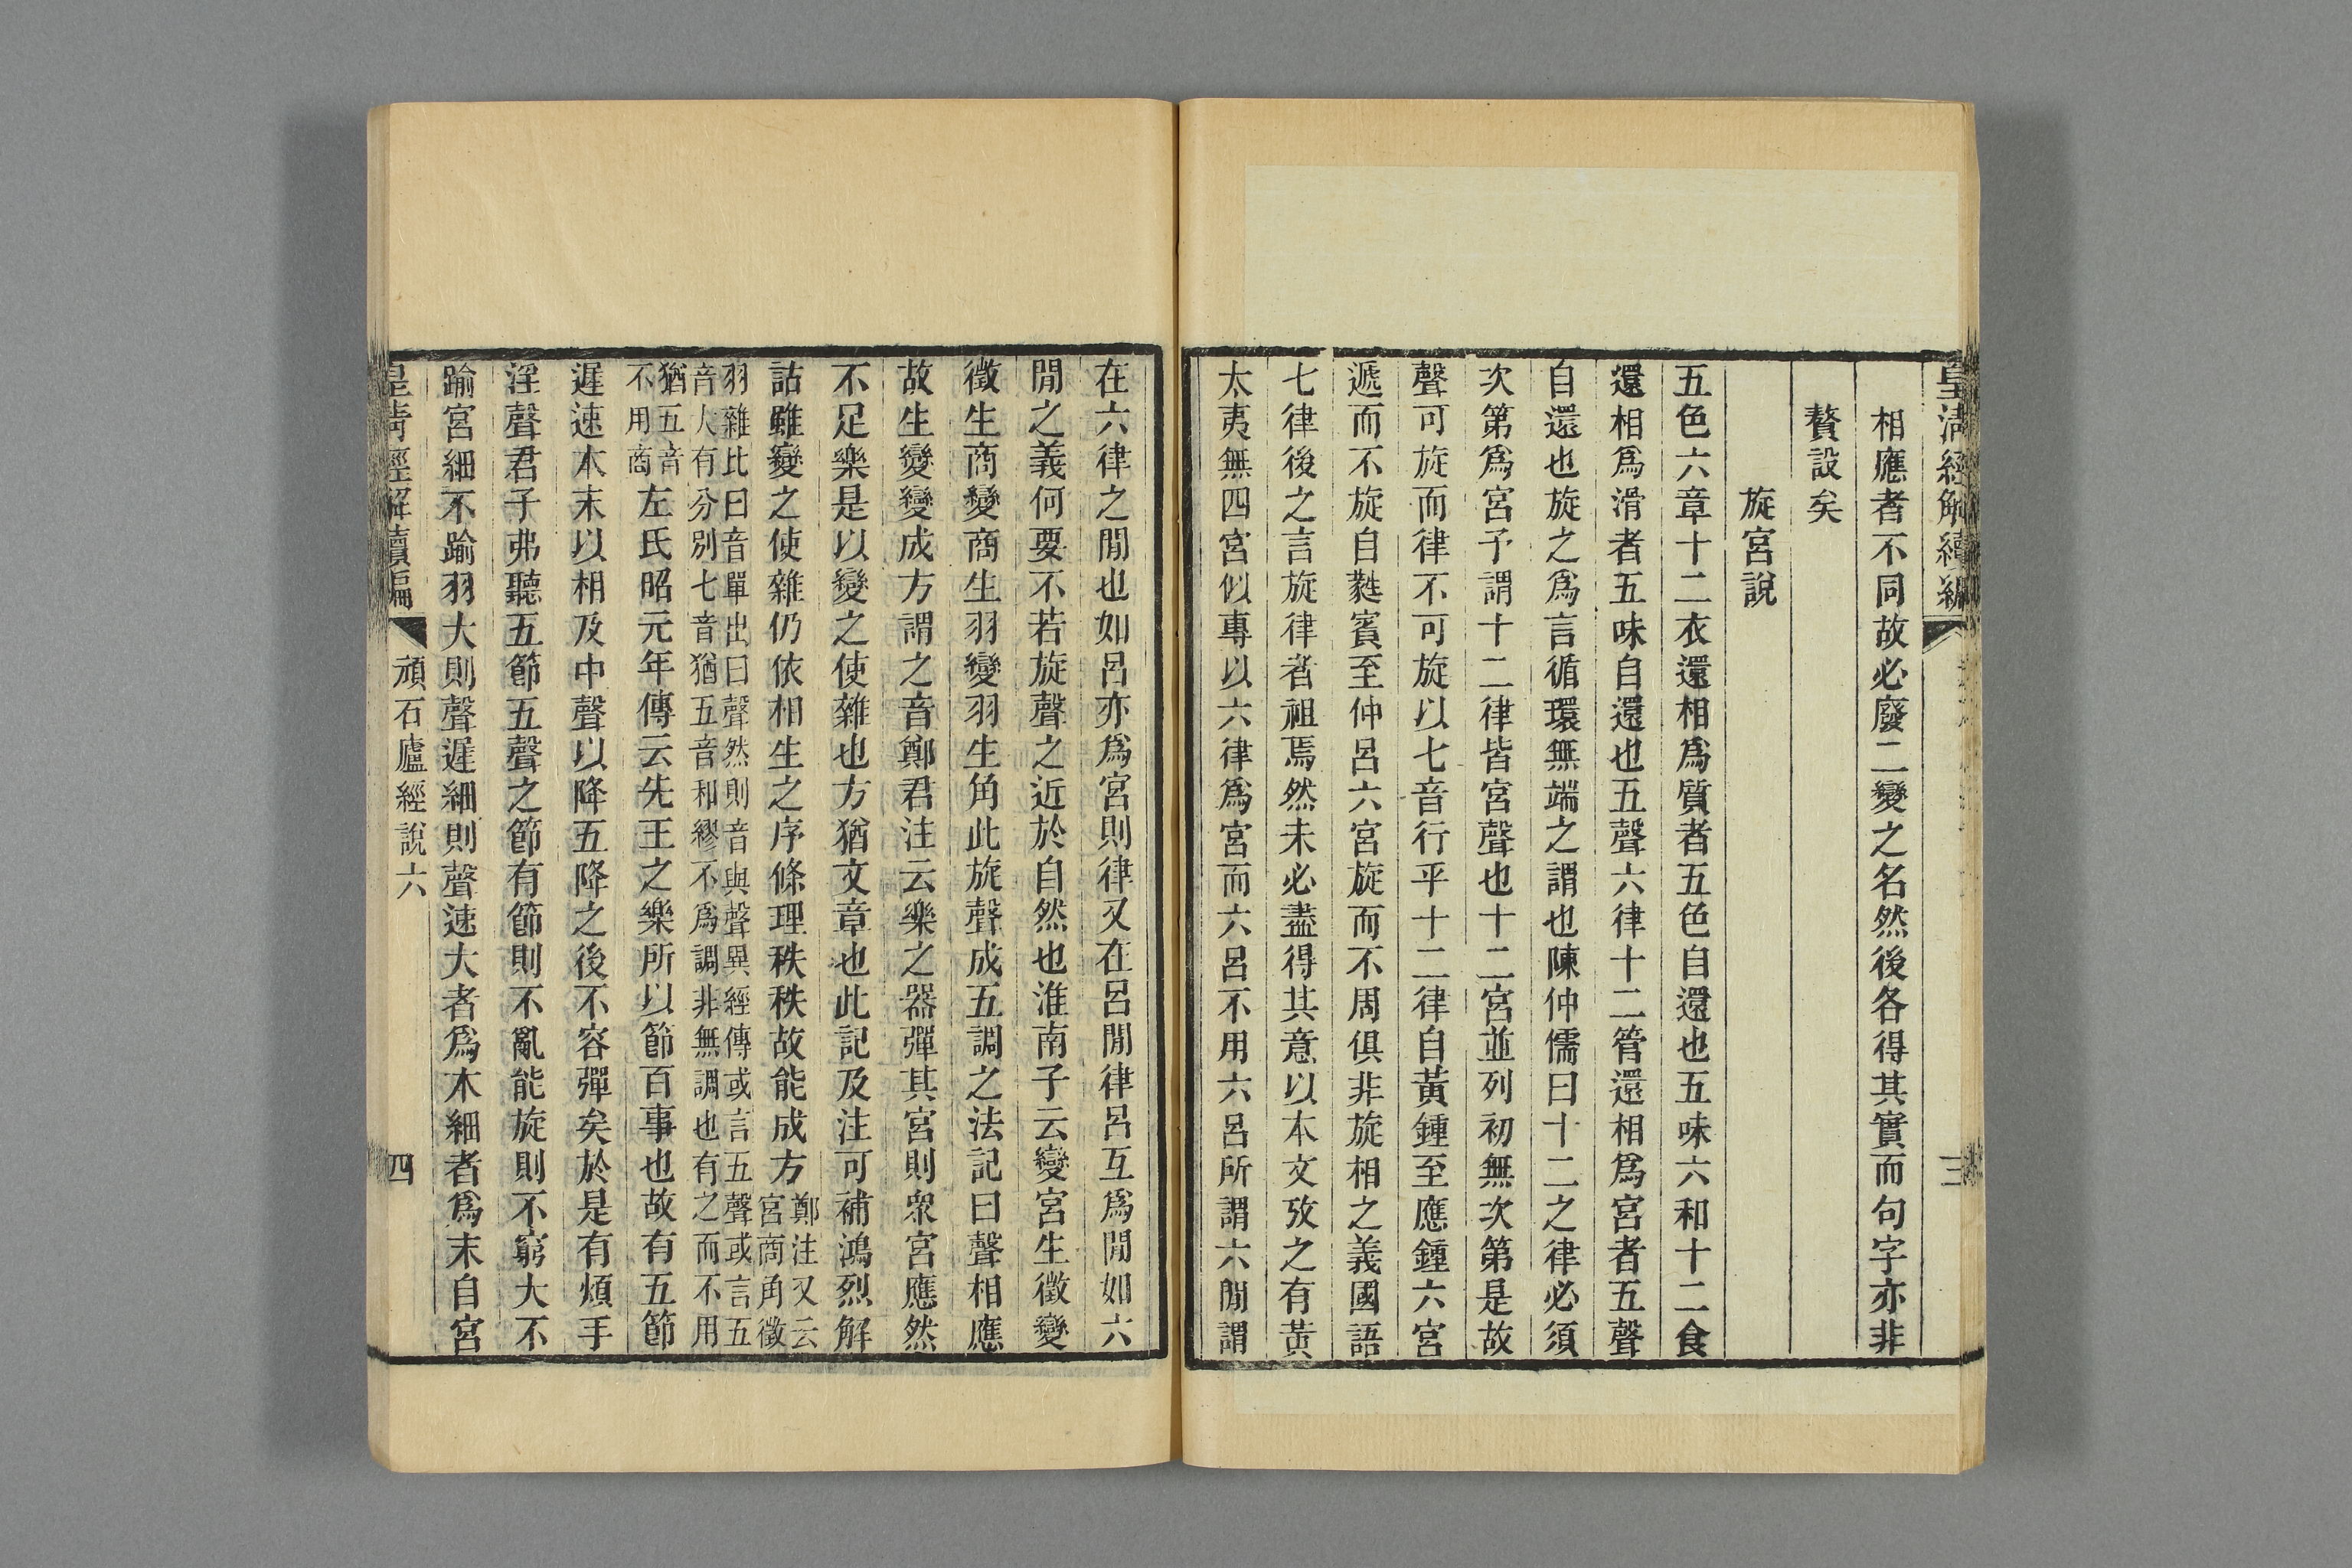 皇清經解續編
三
相應者不同故必廢二變之名然後各得其實而句字亦非
贅設矣
旋宮說
五色六章十二衣還相爲質者五色自還也五味六和十二食
還相爲滑者五味自還也五聲六律十二管還相爲宮者五聲
自還也旋之爲言循環無端之謂也陳仲儒曰十二之律必須
次第爲宮予謂十二律皆宮聲也十二宮並列初無次第是故
聲可旋而律不可旋以七音行平十二律自黃鍾至應鍾六宮
遞而不旋自蕤賓至仲呂六宮旋而不周俱非旋相之義國語
七律後之言旋律者祖焉然未必盡得其意以本文攷之有黃
太夷無四宮似專以六律爲宮而六呂不用六呂所謂六閒謂
在六律之閒也如呂亦爲宮則律又在呂閒律呂互爲閒如六
閒之義何要不若旋聲之近於自然也淮南子云變宮生徵變
徵生商變商生羽變羽生角此旋聲成五調之法記曰聲相應
故生變變成方謂之音鄭君注云樂之器彈其宮則眾宮應然
不足樂是以變之使雜也方猶文章也此記及注可補鴻烈解
詁雖變之使雜仍依相生之序條理秩秩故能成方鄭注又云
宮商角徵
羽雜比曰音單出曰聲然則音與聲異經傳或言五聲或言五
音人有分別七音猶五音和繆不爲調非無調也有之而不用
猶五音
不用商
左氏昭元年傳云先王之樂所以節百事也故有五節
遲速本末以相及中聲以降五降之後不容彈矣於是有煩手
淫聲君子弗聽五節五聲之節有節則不亂能旋則不窮大不
踰宮細不踰羽大則聲遲細則聲速大者爲本細者爲末自宮
皇清經解續編
頑石廬經說六
四